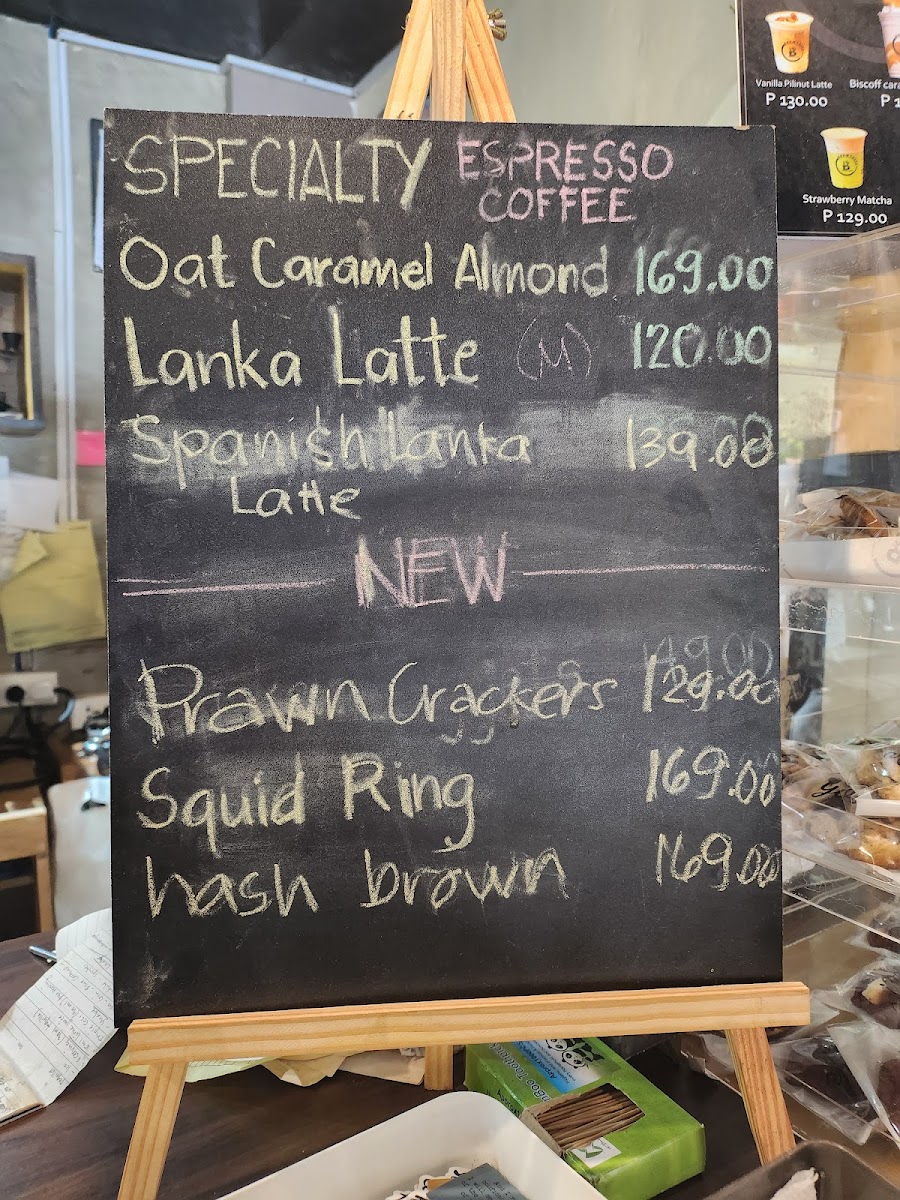 SPECIALTY ESPRESSO COFFEE
Oat Caramel Almond 169.00
Lanka Latte (M) 120.00
Spanish Lanka 139.00
Latte
NEW
Prawn Crackers 129.00
Squid Ring 169.00
hash brown 169.00
Vanilla Pilinut Latte
P 130.00
Biscoff cara
P 1
Strawberry Matcha
P 129.00
B